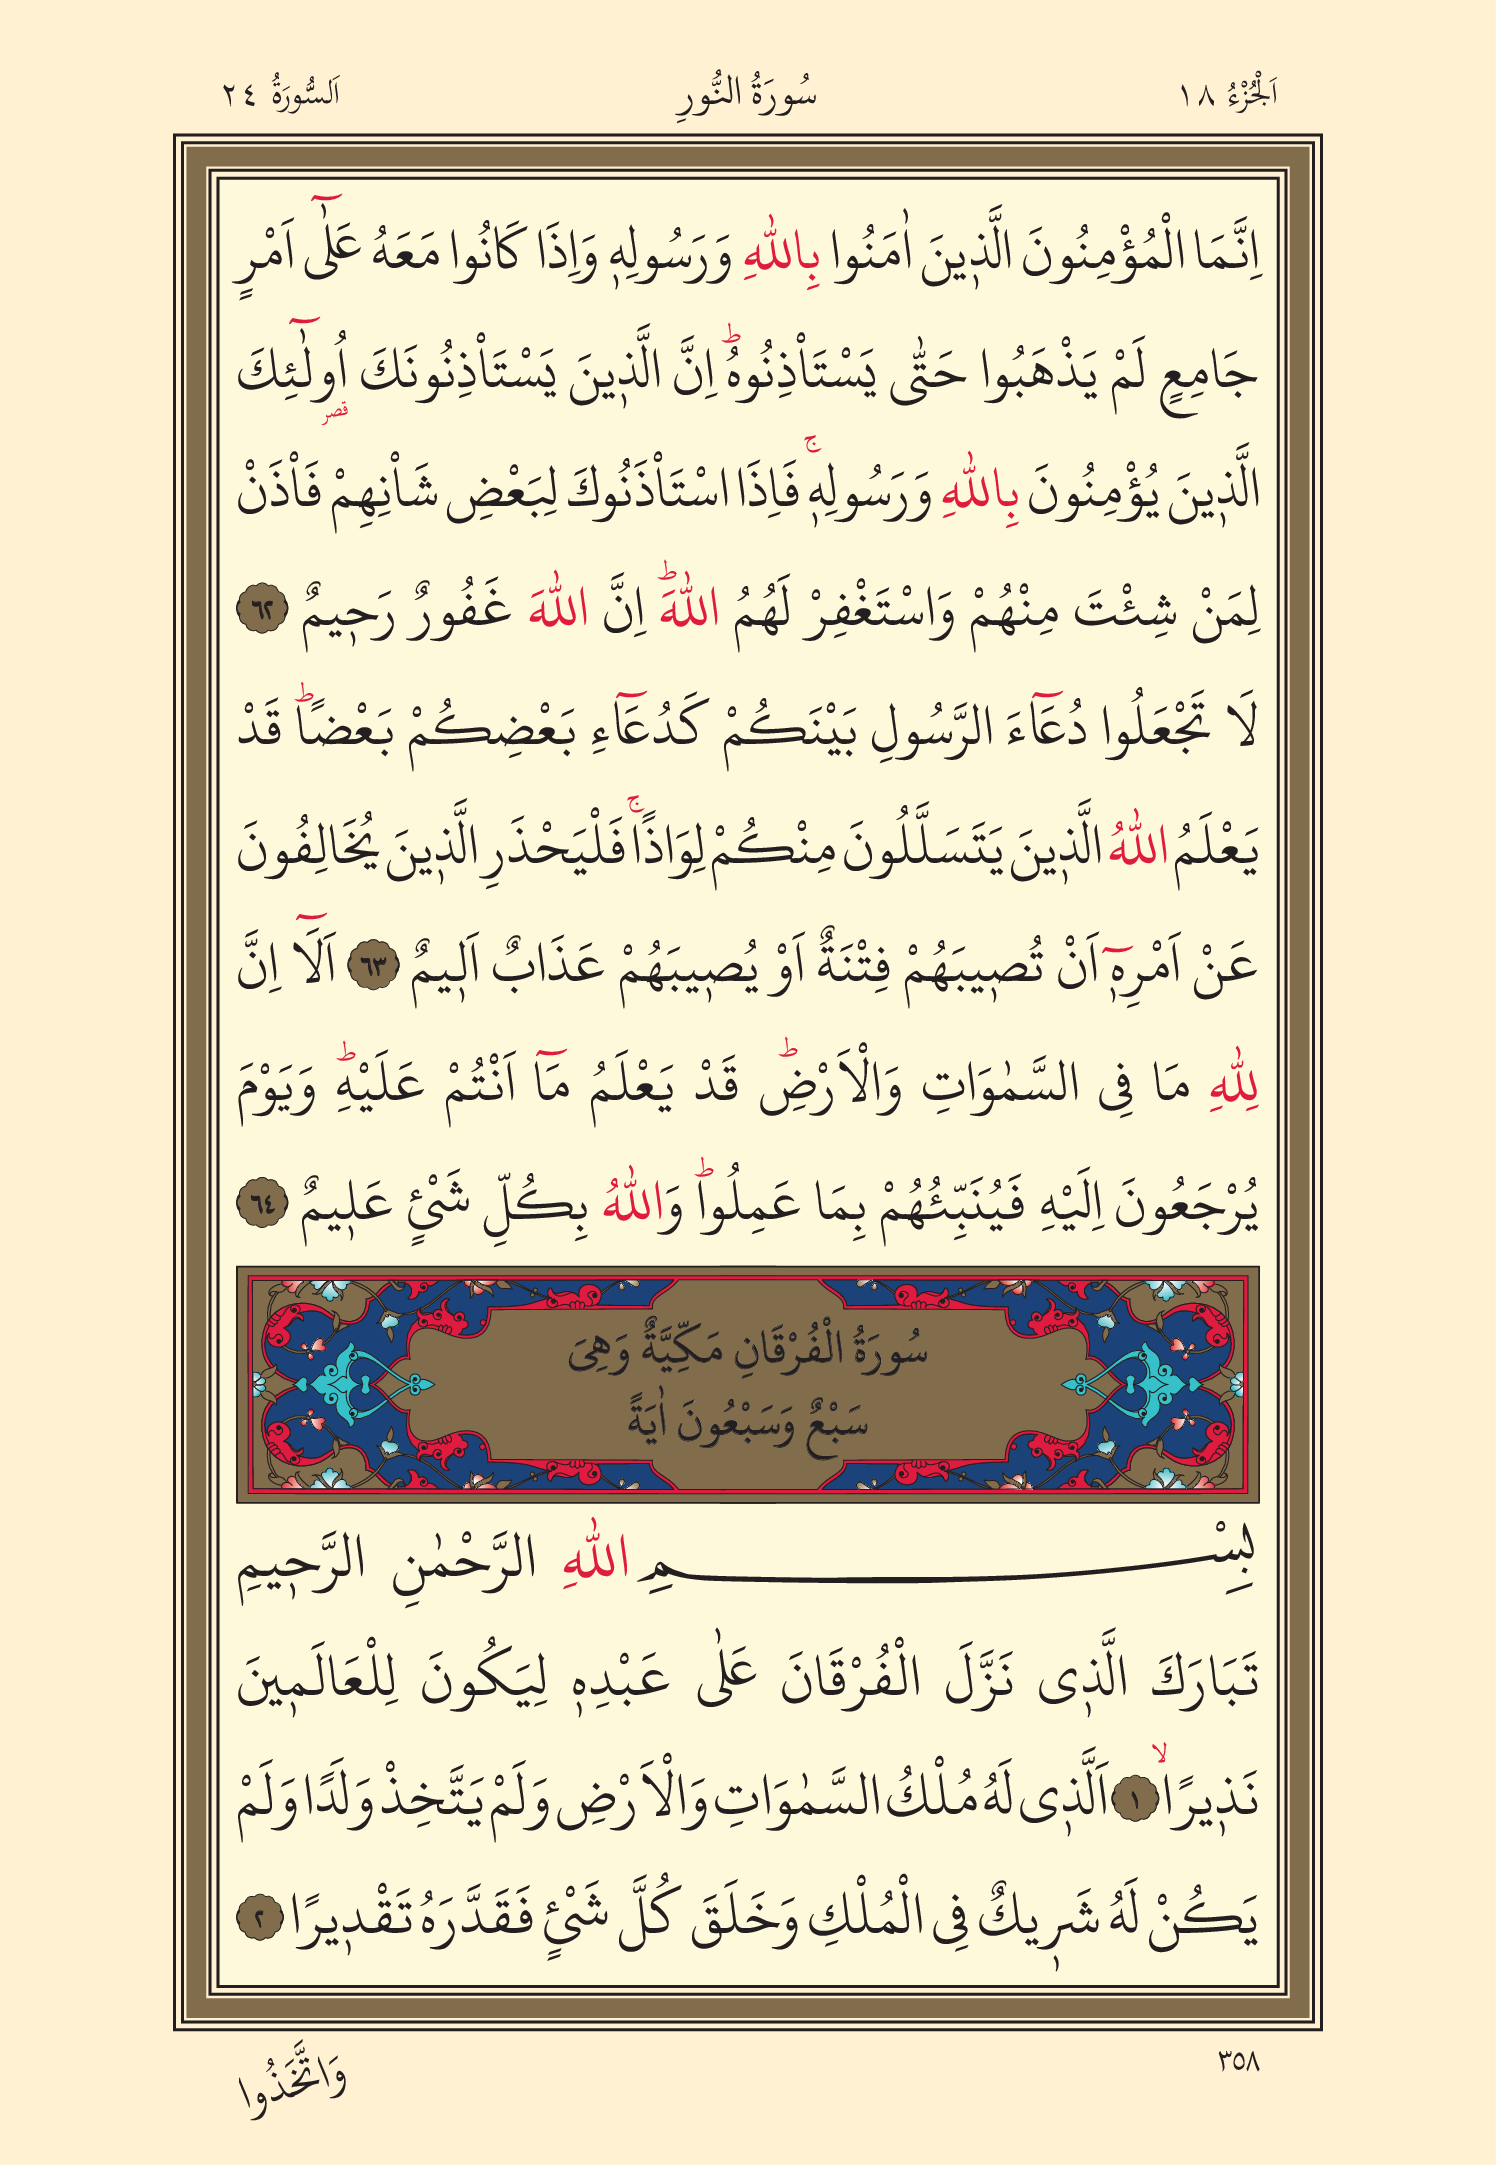 اَلْجُزْءُ ١٨ سُورَةُ النُّورِ اَلسُّورَةُ ٢٤
اِنَّمَا الْمُؤْمِنُونَ الَّذ۪ينَ اٰمَنُوا بِاللّٰهِ وَرَسُولِه۪ وَاِذَا كَانُوا مَعَهُ عَلٰٓى اَمْرٍ
جَامِعٍ لَمْ يَذْهَبُوا حَتّٰى يَسْتَأْذِنُوهُۜ اِنَّ الَّذ۪ينَ يَسْتَأْذِنُونَكَ اُو۬لٰٓئِكَ
الَّذ۪ينَ يُؤْمِنُونَ بِاللّٰهِ وَرَسُولِه۪ۚ فَاِذَا اسْتَأْذَنُوكَ لِبَعْضِ شَأْنِهِمْ فَأْذَنْ
لِمَنْ شِئْتَ مِنْهُمْ وَاسْتَغْفِرْ لَهُمُ اللّٰهَۜ اِنَّ اللّٰهَ غَفُورٌ رَح۪يمٌ ٦٢
لَا تَجْعَلُوا دُعَٓاءَ الرَّسُولِ بَيْنَكُمْ كَدُعَٓاءِ بَعْضِكُمْ بَعْضًاۜ قَدْ
يَعْلَمُ اللّٰهُ الَّذ۪ينَ يَتَسَلَّلُونَ مِنْكُمْ لِوَاذًاۚ فَلْيَحْذَرِ الَّذ۪ينَ يُخَالِفُونَ
عَنْ اَمْرِه۪ٓ اَنْ تُص۪يبَهُمْ فِتْنَةٌ اَوْ يُص۪يبَهُمْ عَذَابٌ اَل۪يمٌ ٦٣ اَلَٓا اِنَّ
لِلّٰهِ مَا فِى السَّمٰوَاتِ وَالْاَرْضِۜ قَدْ يَعْلَمُ مَٓا اَنْتُمْ عَلَيْهِۜ وَيَوْمَ
يُرْجَعُونَ اِلَيْهِ فَيُنَبِّئُهُمْ بِمَا عَمِلُواۜ وَاللّٰهُ بِكُلِّ شَيْئٍ عَل۪يمٌ ٦٤
سُورَةُ الْفُرْقَانِ مَكِّيَّةٌ وَهِىَ
سَبْعٌ وَسَبْعُونَ اٰيَةً
بِسْمِ اللّٰهِ الرَّحْمٰنِ الرَّح۪يمِ
تَبَارَكَ الَّذ۪ى نَزَّلَ الْفُرْقَانَ عَلٰى عَبْدِه۪ لِيَكُونَ لِلْعَالَم۪ينَ
نَذ۪يرًاۙ ١ اَلَّذ۪ى لَهُ مُلْكُ السَّمٰوَاتِ وَالْاَرْضِ وَلَمْ يَتَّخِذْ وَلَدًا وَلَمْ
يَكُنْ لَهُ شَر۪يكٌ فِى الْمُلْكِ وَخَلَقَ كُلَّ شَيْئٍ فَقَدَّرَهُ تَقْد۪يرًا ٢
٣٥٨
وَاتَّخَذُوا